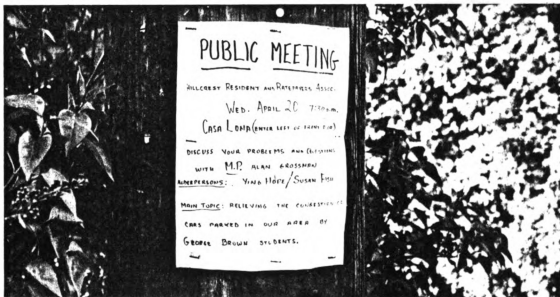 PUBLIC MEETING
HILLCREST RESIDENT AND RATEPAYERS ASSOC.
WED. APRIL 20 7:30 P.M.
CASA LOMA (ENTER
DISCUSS YOUR PROBLEMS AND
WITH M.P. ALAN GROSSMAN
ALDERPERSONS: YING HOPE/SUSAN FISH
MAIN TOPIC: RELIEVING THE CONGESTION OF
CARS PARKED IN OUR AREA BY
GEORGE BROWN STUDENTS.